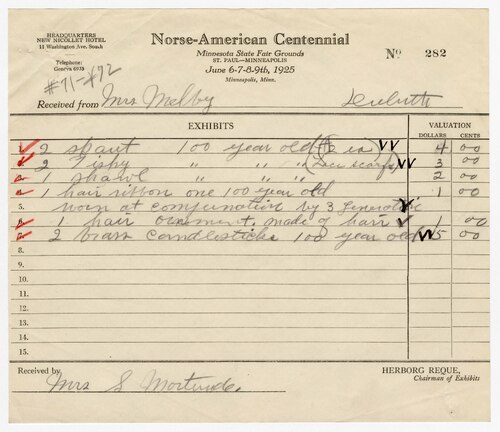 HEADQUARTERS
NEW NICOLLET HOTEL
11 Washington Ave. South
Telephone:
Geneva 6975
#71-#72
Norse-American Centennial
Minnesota State Fair Grounds
ST. PAUL—MINNEAPOLIS
June 6-7-8-9th, 1925
Minneapolis, Minn.
No 282
Received from Mrs Melby Duluth
EXHIBITS
VALUATION
DOLLARS CENTS
1. 2 100 year old ($2 ea 4 00
2. 2 " " " 3 00
3. 1 shawl " " " 2 00
4. 1 hair ribbon one 100 year old 1 00
5. worn at by 3
6. 1 hair ornament, made of hair 1 00
7. 2 brass candlesticks 100 year old 5 00
8.
9.
10.
11.
12.
13.
14.
15.
Received by Mrs S
HERBORG REQUE,
Chairman of Exhibits